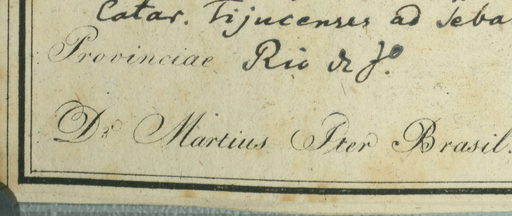 Catar. Tijucenses ad Seba
Provinciae Rio de Jº.
Dr. Martius Iter Brasil.